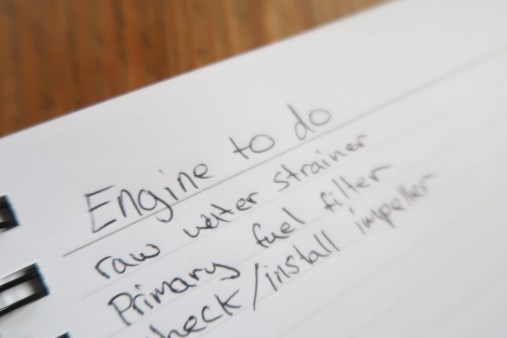 Engine to do
raw water strainer
Primary fuel filter
check/install impeller